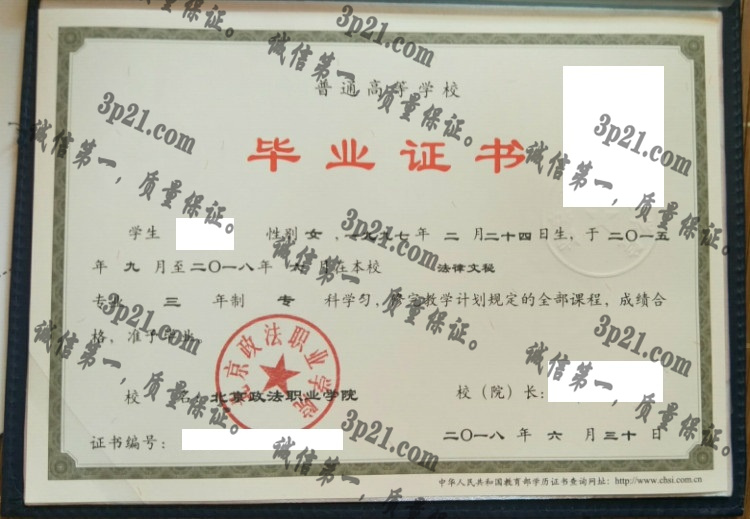 普通高等学校
毕业证书
学生 性别 女，一九九七年 二 月二十四日生，于二〇一五
年 九 月至二〇一八年 六 月在本校 法律文秘
专业 三 年制 专 科学习，修完教学计划规定的全部课程，成绩合
格，准予毕业。
校 名：北京政法职业学院 校（院）长：
证书编号： 二〇一八 年 六 月 三十 日
中华人民共和国教育部学历证书查询网址：http://www.chsi.com.cn
北京政法职业学院
3p21.com
诚信第一，质量保证。
3p21.com
诚信第一，质量保证。
3p21.com
诚信第一，质量保证。
3p21.com
诚信第一，质量保证。
3p21.com
诚信第一，质量保证。
3p21.com
诚信第一，质量保证。
3p21.com
诚信第一，质量保证。
3p21.com
诚信第一，质量保证。
质量保证。